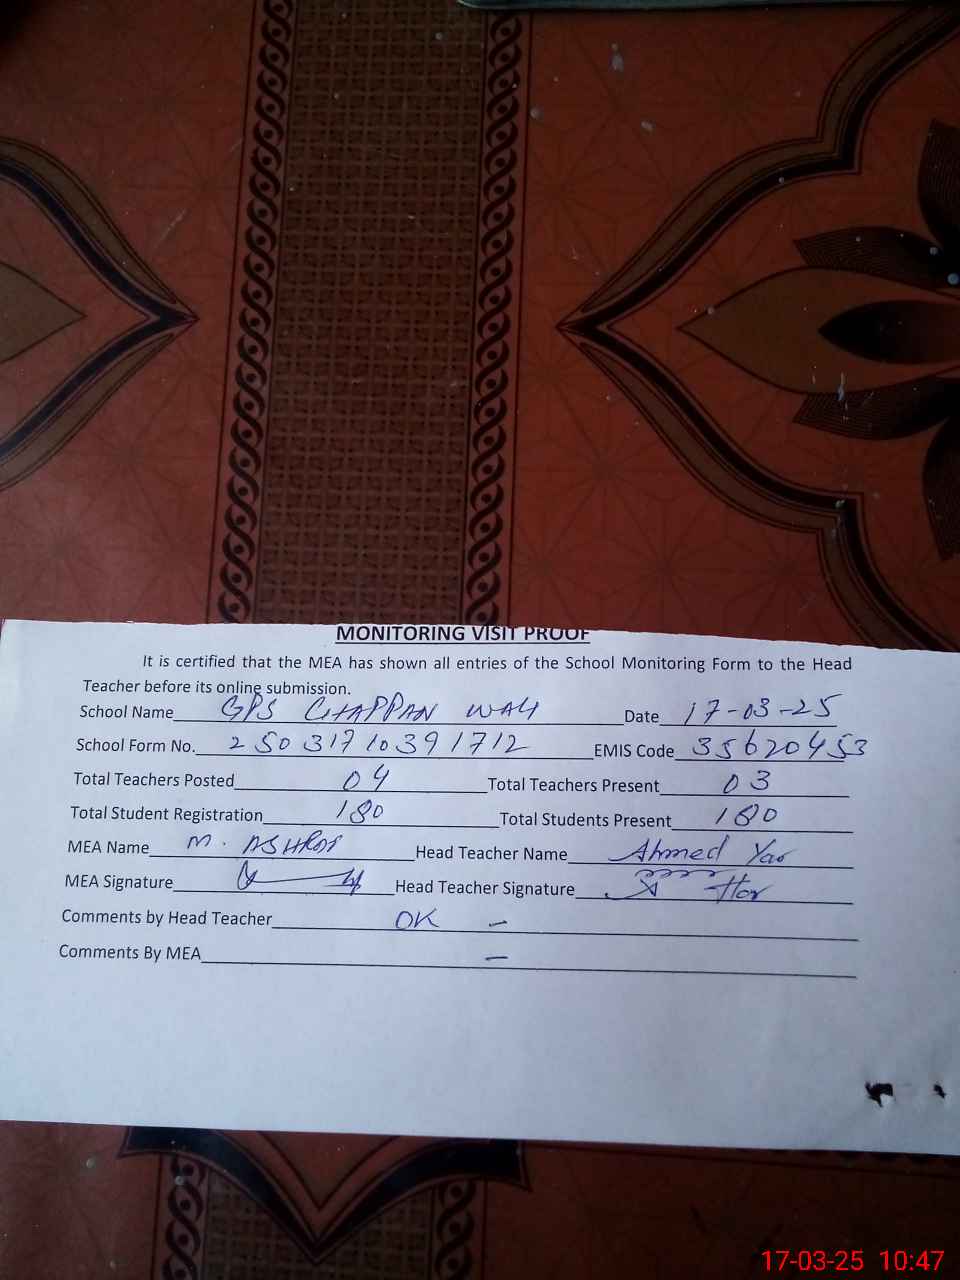 MONITORING VISIT PROOF
It is certified that the MEA has shown all entries of the School Monitoring Form to the Head
Teacher before its online submission.
School Name GPS CHAPPAN WALI Date 17-03-25
School Form No. 25031710391712 EMIS Code 35620453
Total Teachers Posted 04 Total Teachers Present 03
Total Student Registration 180 Total Students Present 180
MEA Name M. ASHRAF Head Teacher Name Ahmed Yar
MEA Signature Head Teacher Signature
Comments by Head Teacher OK –
Comments By MEA –
17-03-25 10:47